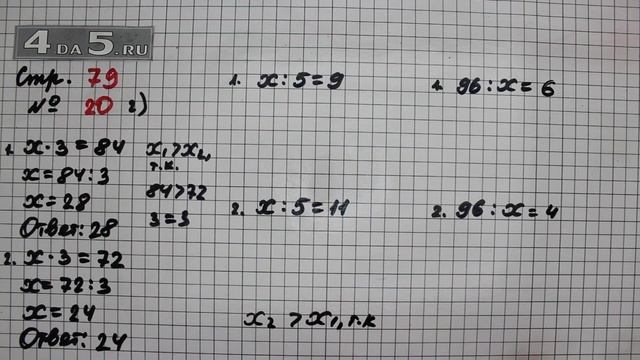 4 DA 5.RU
Стр. 79
№ 20 г)
1. x · 3 = 84
x = 84 : 3
x = 28
Ответ: 28
2. x · 3 = 72
x = 72 : 3
x = 24
Ответ: 24
x₁ > x₂,
т.к.
84 > 72
3 = 3
1. x : 5 = 9
2. x : 5 = 11
x₂ > x₁, т.к
1. 96 : x = 6
2. 96 : x = 4